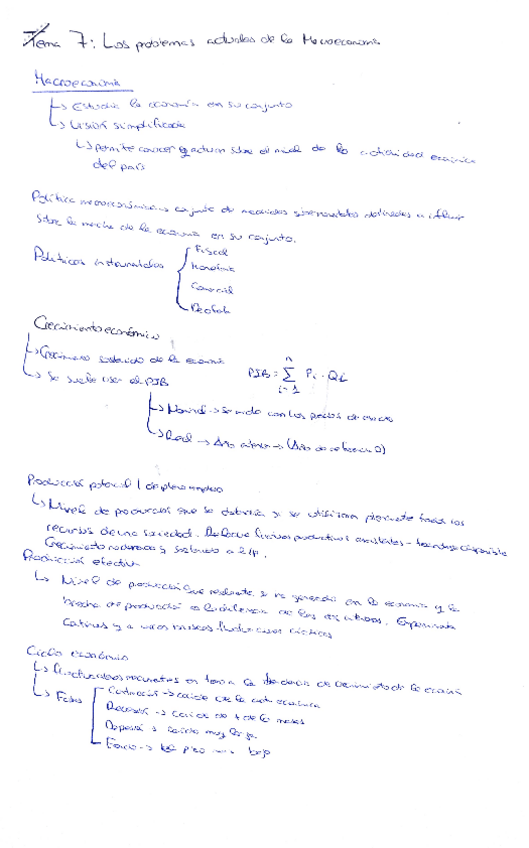 Tema 7: Los problemas actuales de la Macroeconomía
Macroeconomía
↳ Estudia la economía en su conjunto
↳ Visión simplificada
↳ permite conocer y actuar sobre el nivel de la actividad económica
del país
Política macroeconómica: conjunto de medidas gubernamentales destinadas a influir
sobre la marcha de la economía en su conjunto.
Políticas instrumentales
Fiscal
Monetaria
Comercial
Crecimiento económico
↳ Crecimiento sostenido de la economía
↳ Se suele usar el PIB
PIB = Σ Pi · Qi
n
i=1
↳ Nominal → Se mide con los precios de
↳ Real → Año
Producción potencial / de pleno empleo
↳ Nivel de producción que se obtendría si se utilizaran plenamente todos los
recursos de una sociedad. productivos existentes - tecnología disponible
Crecimiento moderado y sostenido a L/P.
Producción efectiva
↳ Nivel de producción que realmente se ha generado en la economía y la
brecha de producción es la diferencia de las
y a veces cíclicas
Ciclo económico
↳ fluctuaciones recurrentes en torno a la tendencia de crecimiento de la economía
↳ Fases
Contracción → caída de la act. económica
Recesión → caída de + de 6 meses
Depresión → caída muy larga
Fondo → pico más bajo